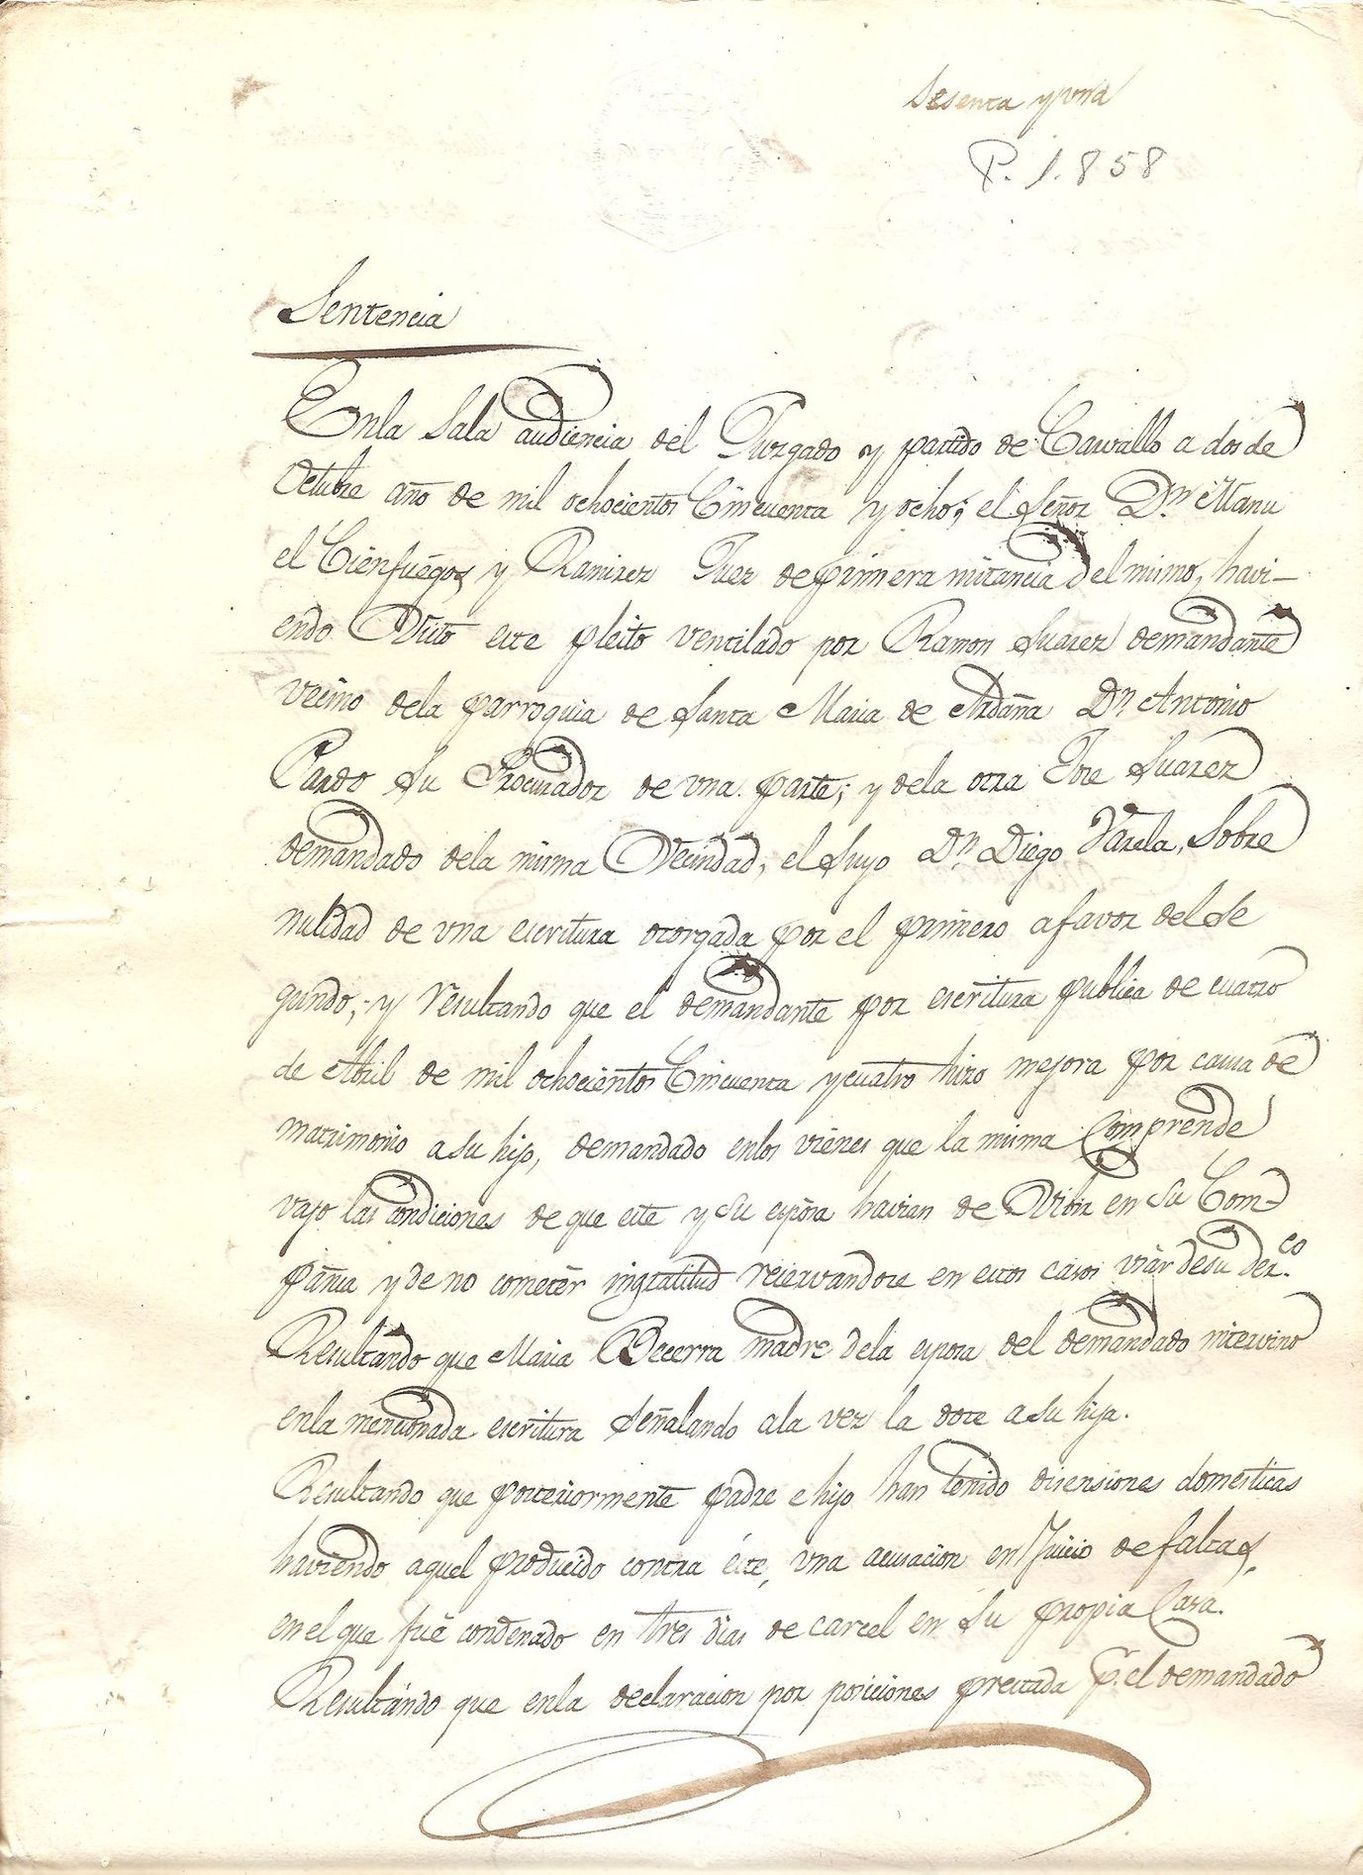 Sesenta y una
P. 1.858
Sentencia
En la Sala audiencia del Juzgado y partido de Carvallo a dos de
Octubre año de mil ochocientos Cincuenta y ocho; el Señor Dn. Manu
el Cienfuegos y Ramirez Juez de primera instancia del mismo, havi-
endo Visto este pleito ventilado por Ramon Suarez demandante
vecino dela parroquia de Santa Maria de Ardaña Dn. Antonio
Pardo Su Procurador de una parte; y dela otra Jose Suarez
demandado dela misma Vecindad, el Suyo Dn. Diego Varela, Sobre
nulidad de una escritura otorgada por el primero a favor del Se
gundo; y resultando que el demandante por escritura publica de cuatro
de Abril de mil ochocientos Cincuenta y cuatro hizo mejora por causa de
matrimonio a su hijo, demandado en los vienes que la misma Comprende
vajo las condiciones de que este y su esposa havian de Vibir en su Com-
pañia y de no cometer ingratitud reservandose en estos casos usar de su derco.
Resultando que Maria Becerra madre dela esposa del demandado intervino
en la mencionada escritura Señalando ala vez la dote a su hija.
Resultando que posteriormente padre e hijo han tenido disensiones domesticas
haviendo aquel producido contra éste, una acusacion en Juicio de faltas,
en el que fué condenado en tres dias de carcel en su propia Casa.
Resultando que en la declaracion por posiciones prestada p.r el demandado